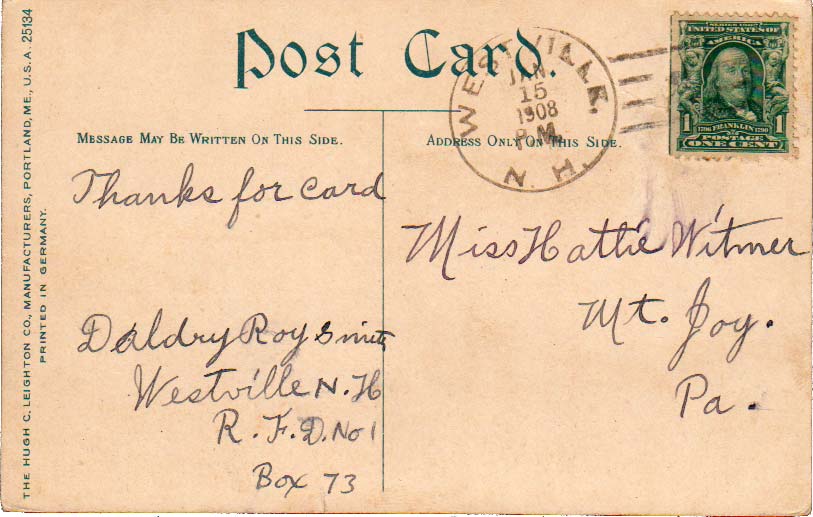 Post Card.
WESTVILLE,
JAN
15
1908
P.M.
N.H.
SERIES 1902
UNITED STATES OF
AMERICA
1 1706 FRANKLIN 1790 1
POSTAGE
ONE CENT
MESSAGE MAY BE WRITTEN ON THIS SIDE.
ADDRESS ONLY ON THIS SIDE.
Thanks for card
Roy Smith
Westville N. H
R. F. D. No 1
Box 73
Miss Hattie Witmer
Mt. Joy.
Pa.
THE HUGH C. LEIGHTON CO., MANUFACTURERS, PORTLAND, ME., U.S.A. 25134
PRINTED IN GERMANY.